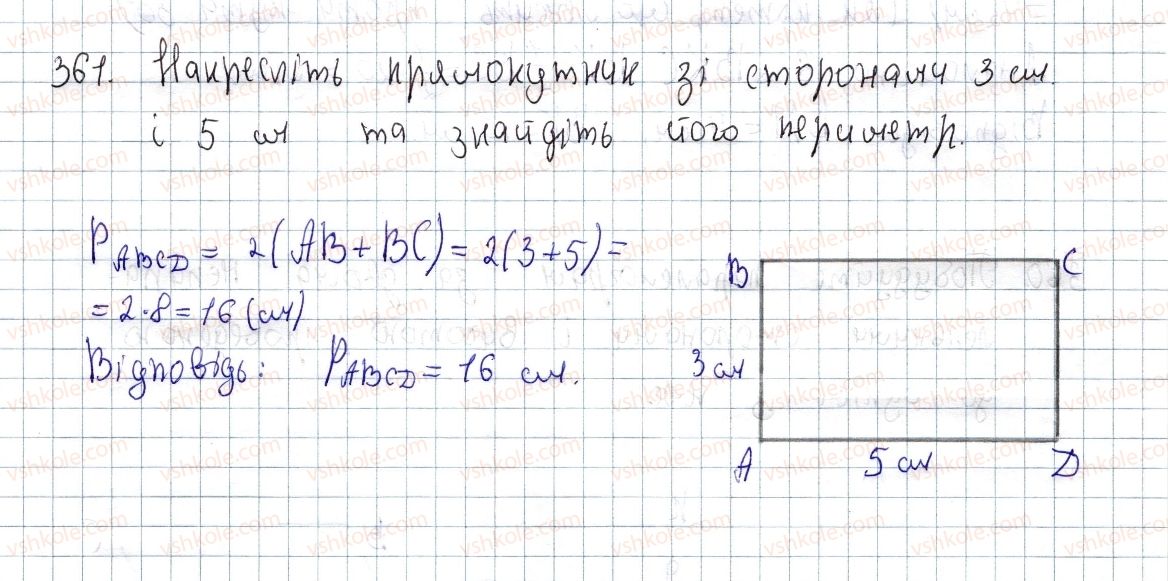 361. Накресліть прямокутник зі сторонами 3 см.
і 5 см та знайдіть його периметр.
P_ABCD = 2(AB + BC) = 2(3+5) =
= 2·8 = 16 (см)
Відповідь: P_ABCD = 16 см.
B C
3 см
A 5 см D